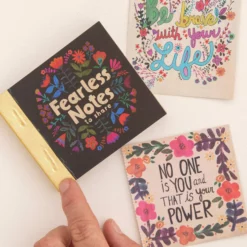 Be brave
with Your
Life
Fearless
Notes
to share
NO ONE
IS YOU AND
THAT IS YOUR
POWER